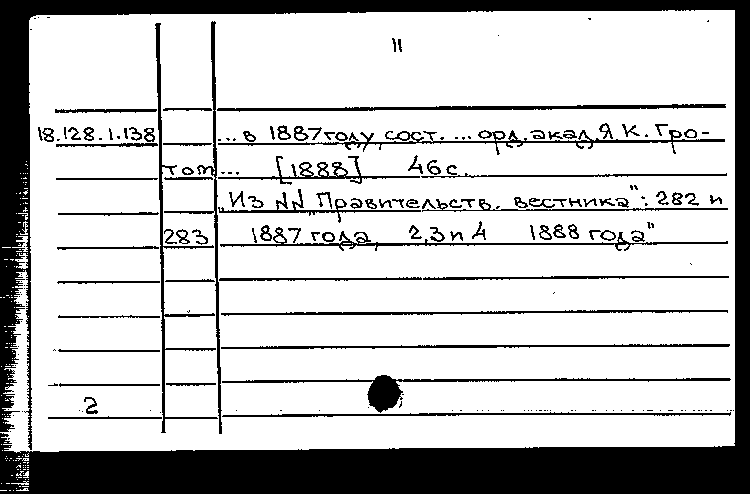 11
18.128.1.138 ... в 1887 году, сост. ... орд. акад. Я К. Гро-
том... [1888] 46 с.
„Из №№ „Правительств. вестника": 282 и
283 1887 года, 2,3 и 4 1888 года"
2